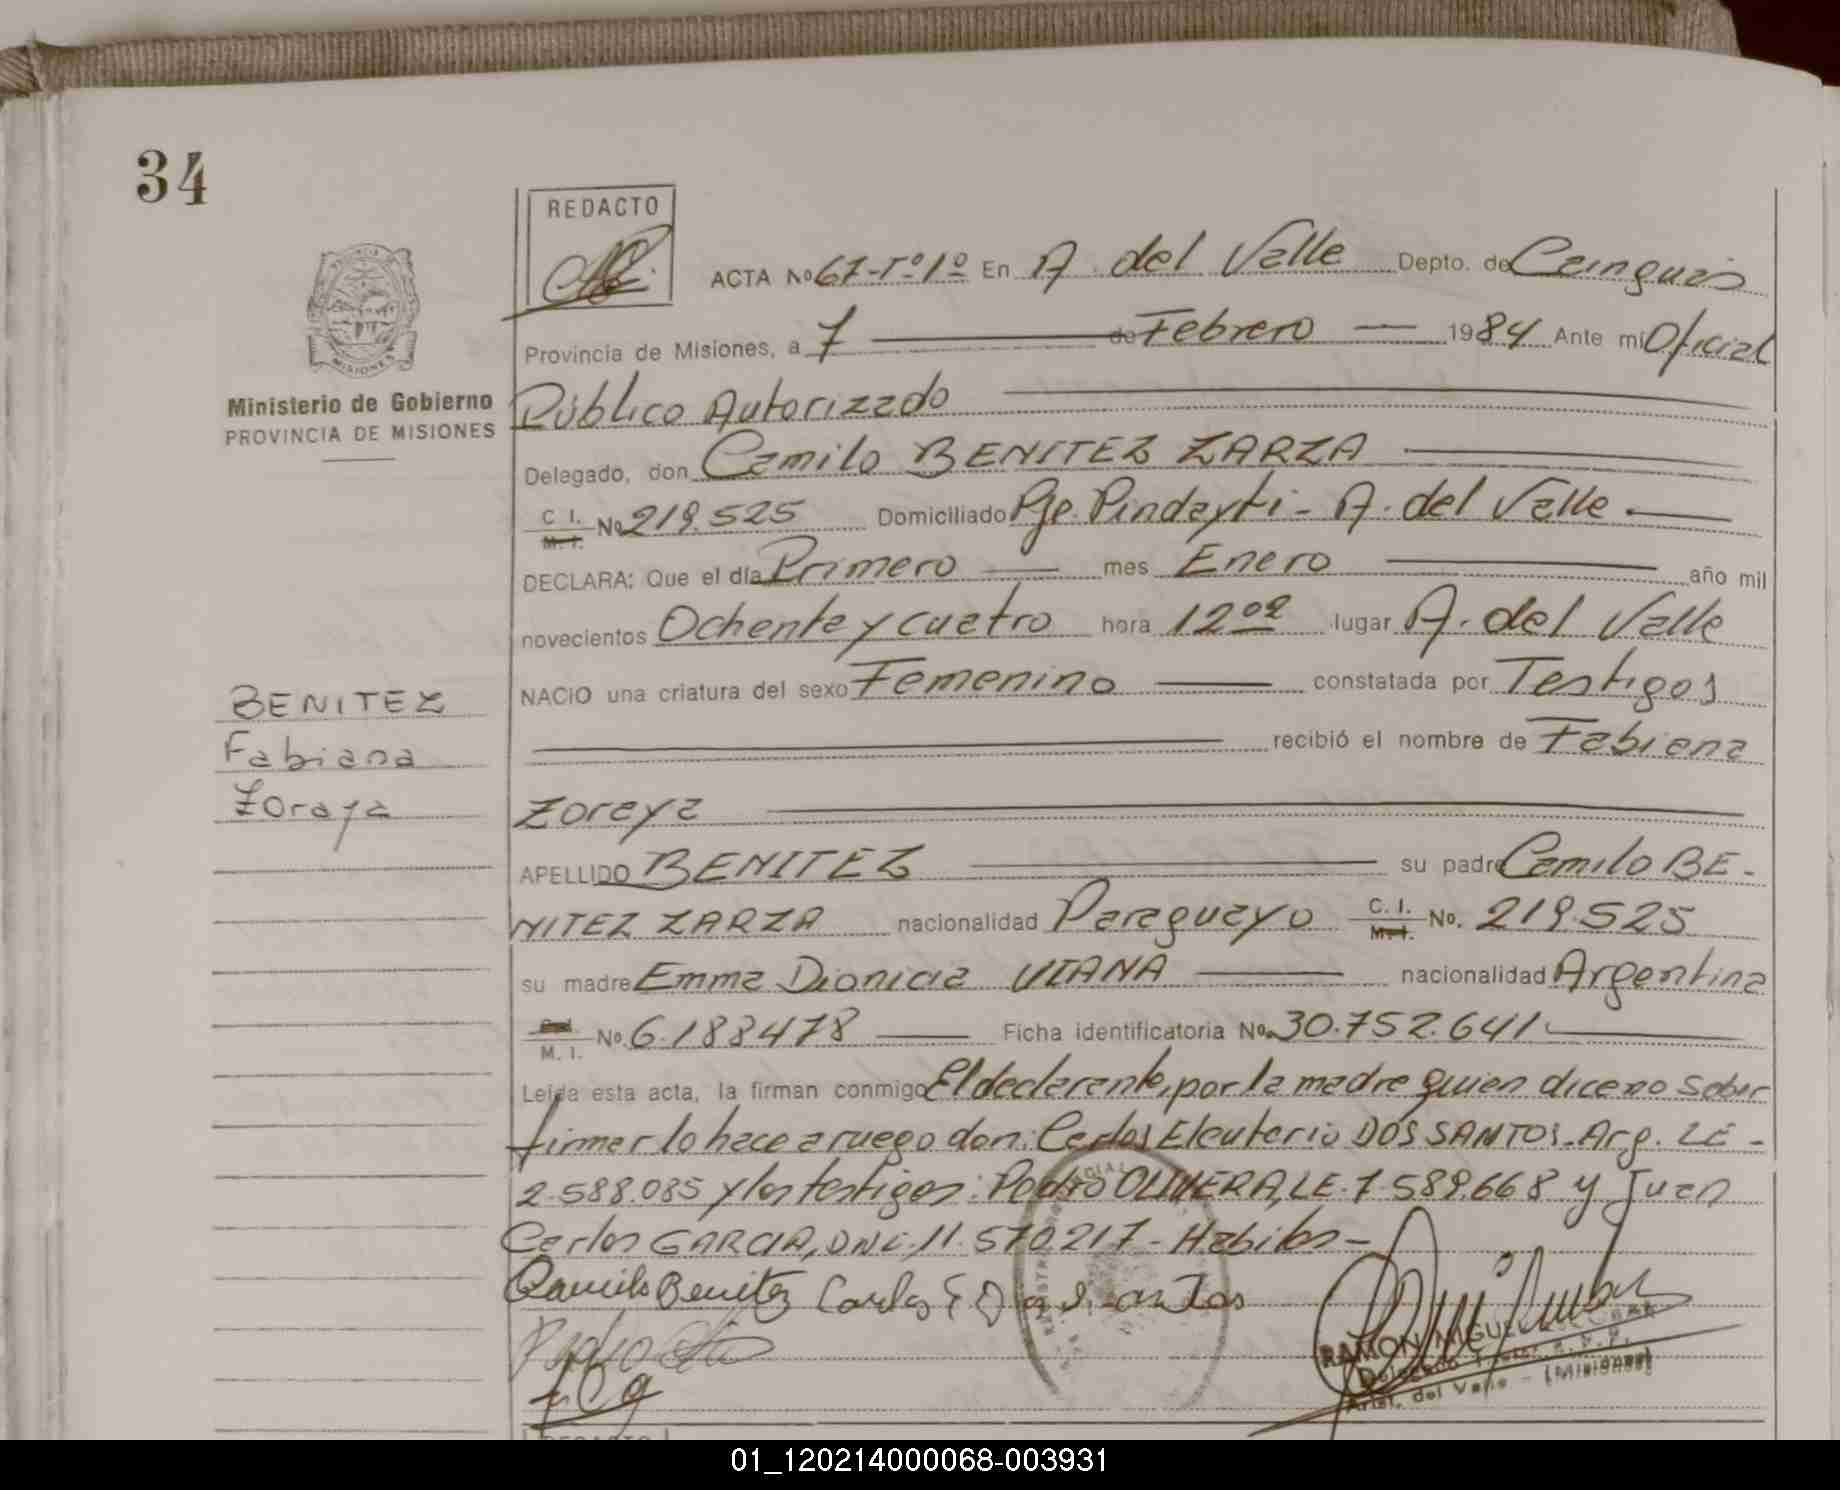 34
REDACTO
ACTA No 67-Tº1º En A. del Valle Depto. de Cainguás
Provincia de Misiones, a 7 de Febrero 1984 Ante mi Oficial
Ministerio de Gobierno
PROVINCIA DE MISIONES
Público Autorizado
Delegado, don Camilo BENITEZ ZARZA
C. I. M. I. No 219.525 Domiciliado Pje. Pindayti - A. del Valle.
DECLARA: Que el día Primero mes Enero año mil
novecientos Ochenta y cuatro hora 12oo lugar A. del Valle
NACIO una criatura del sexo Femenino constatada por Testigos
BENITEZ
Fabiana
Zoraya
recibió el nombre de Fabiana
Zoraya
APELLIDO BENITEZ su padre Camilo BE-
NITEZ ZARZA nacionalidad Paraguayo C. I. M. I. No. 219.525
su madre Emma Dionicia VIANA nacionalidad Argentina
M. I. No. 6.188478 Ficha identificatoria No. 30.752.641.
Leída esta acta, la firman conmigo El declarante, por la madre quien dice no saber
firmar lo hace a ruego don: Carlos Eleuterio DOS SANTOS - Arg. LE-
2.588.085 y los testigos: Pedro OLIVERA, LE. 7.589.668 y Juan
Carlos GARCIA, DNI. 11.570217 - Habiles -
Camilo Benitez Carlos E Dos Santos
Pedro
RAMON MIGUEL
Delegado
Arist. del Valle - (Misiones)
REDACTO
01_120214000068-003931